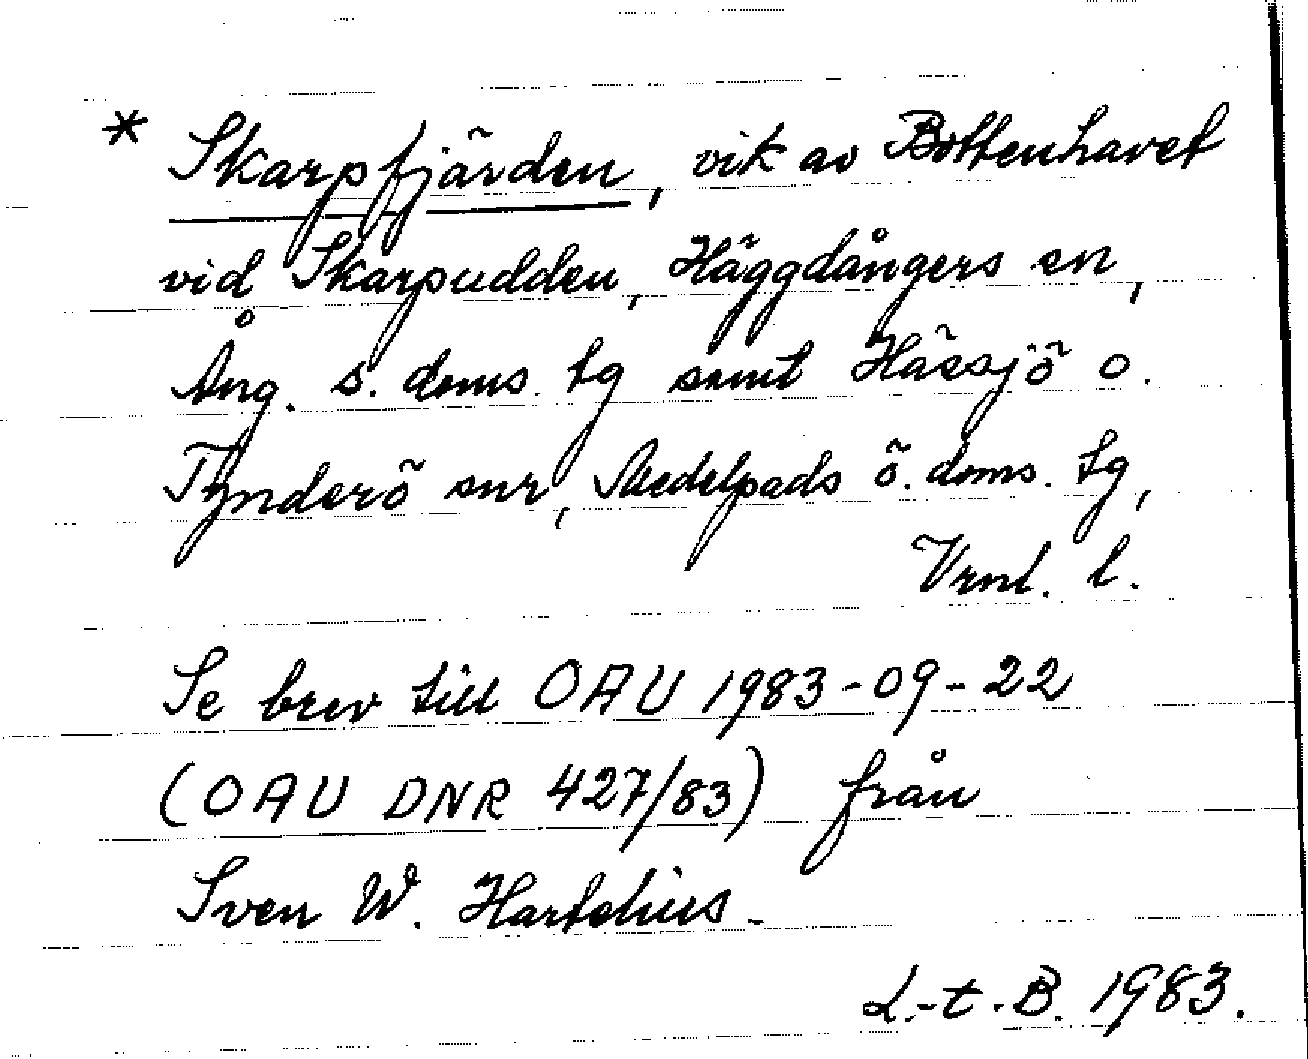 * Skarpfjärden, vik av Bottenhavet
vid Skarpudden, Häggdångers sn,
Ång. s. doms. tg samt Hässjö o.
Tynderö snr, Medelpads ö. doms. tg,
Vrnl. l.
Se brev till OAU 1983-09-22
(OAU DNR 427/83) från
Sven W. Hartelius.
L.-t.B. 1983.